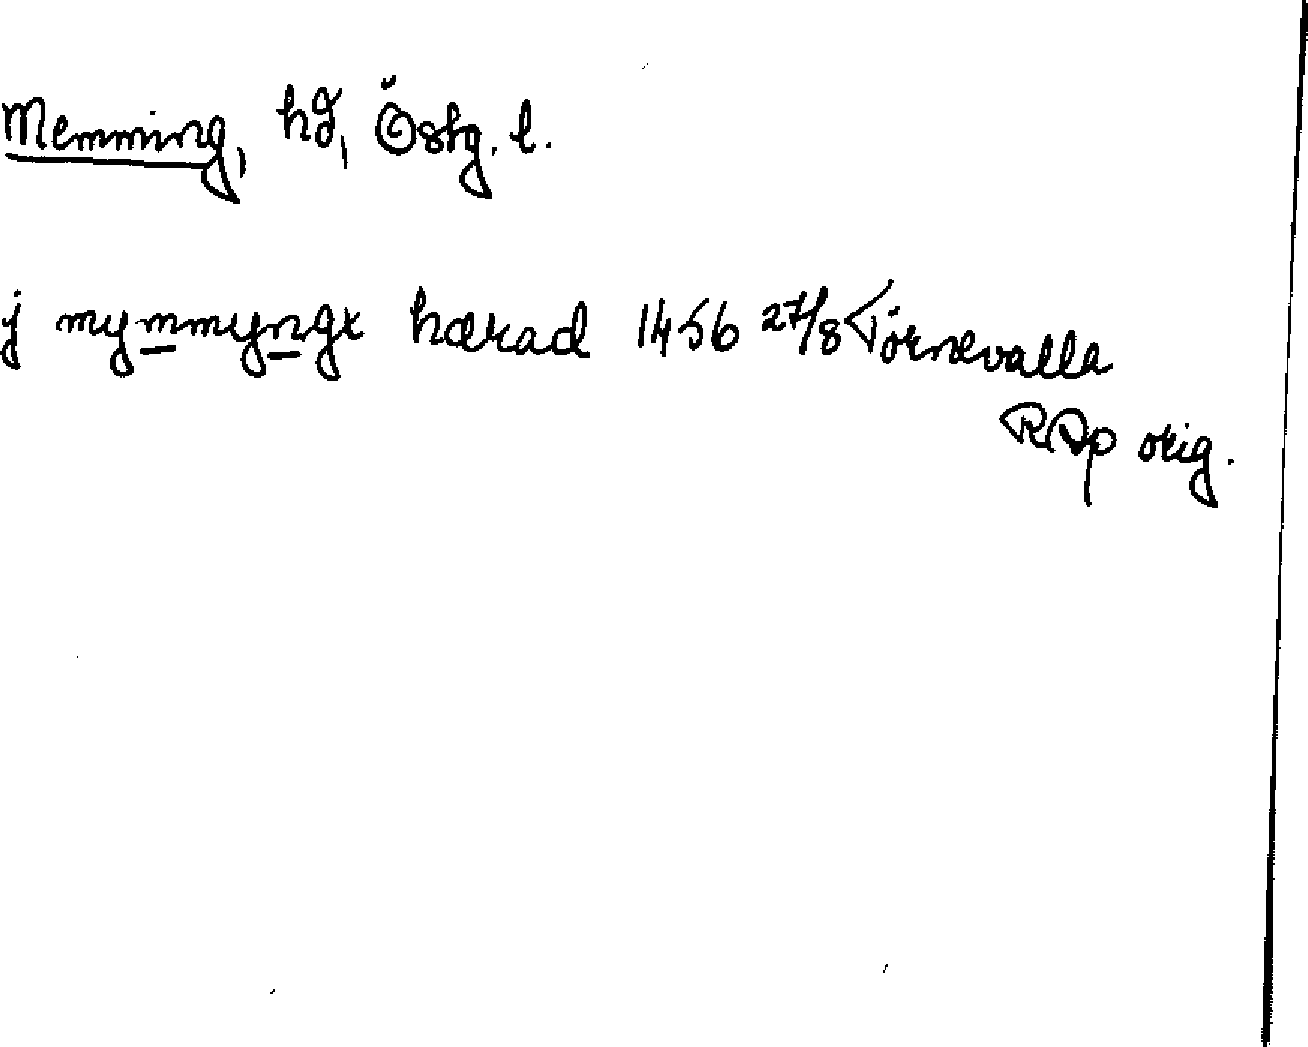 Memming, hd, Östg. l.
j mymmyngx hærad 1456 27/8 Törnevalla
RAp orig.